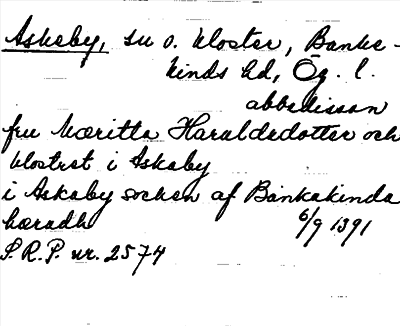 Askaby, sn o. kloster, Banke-
kinds hd, Ög. l.
abbedissan
fru Mæritta Haraldsdotter och
klostret i Askaby
i Askaby socken af Bankakinda
hæradh 6/9 1391
S.R.P. nr. 2574